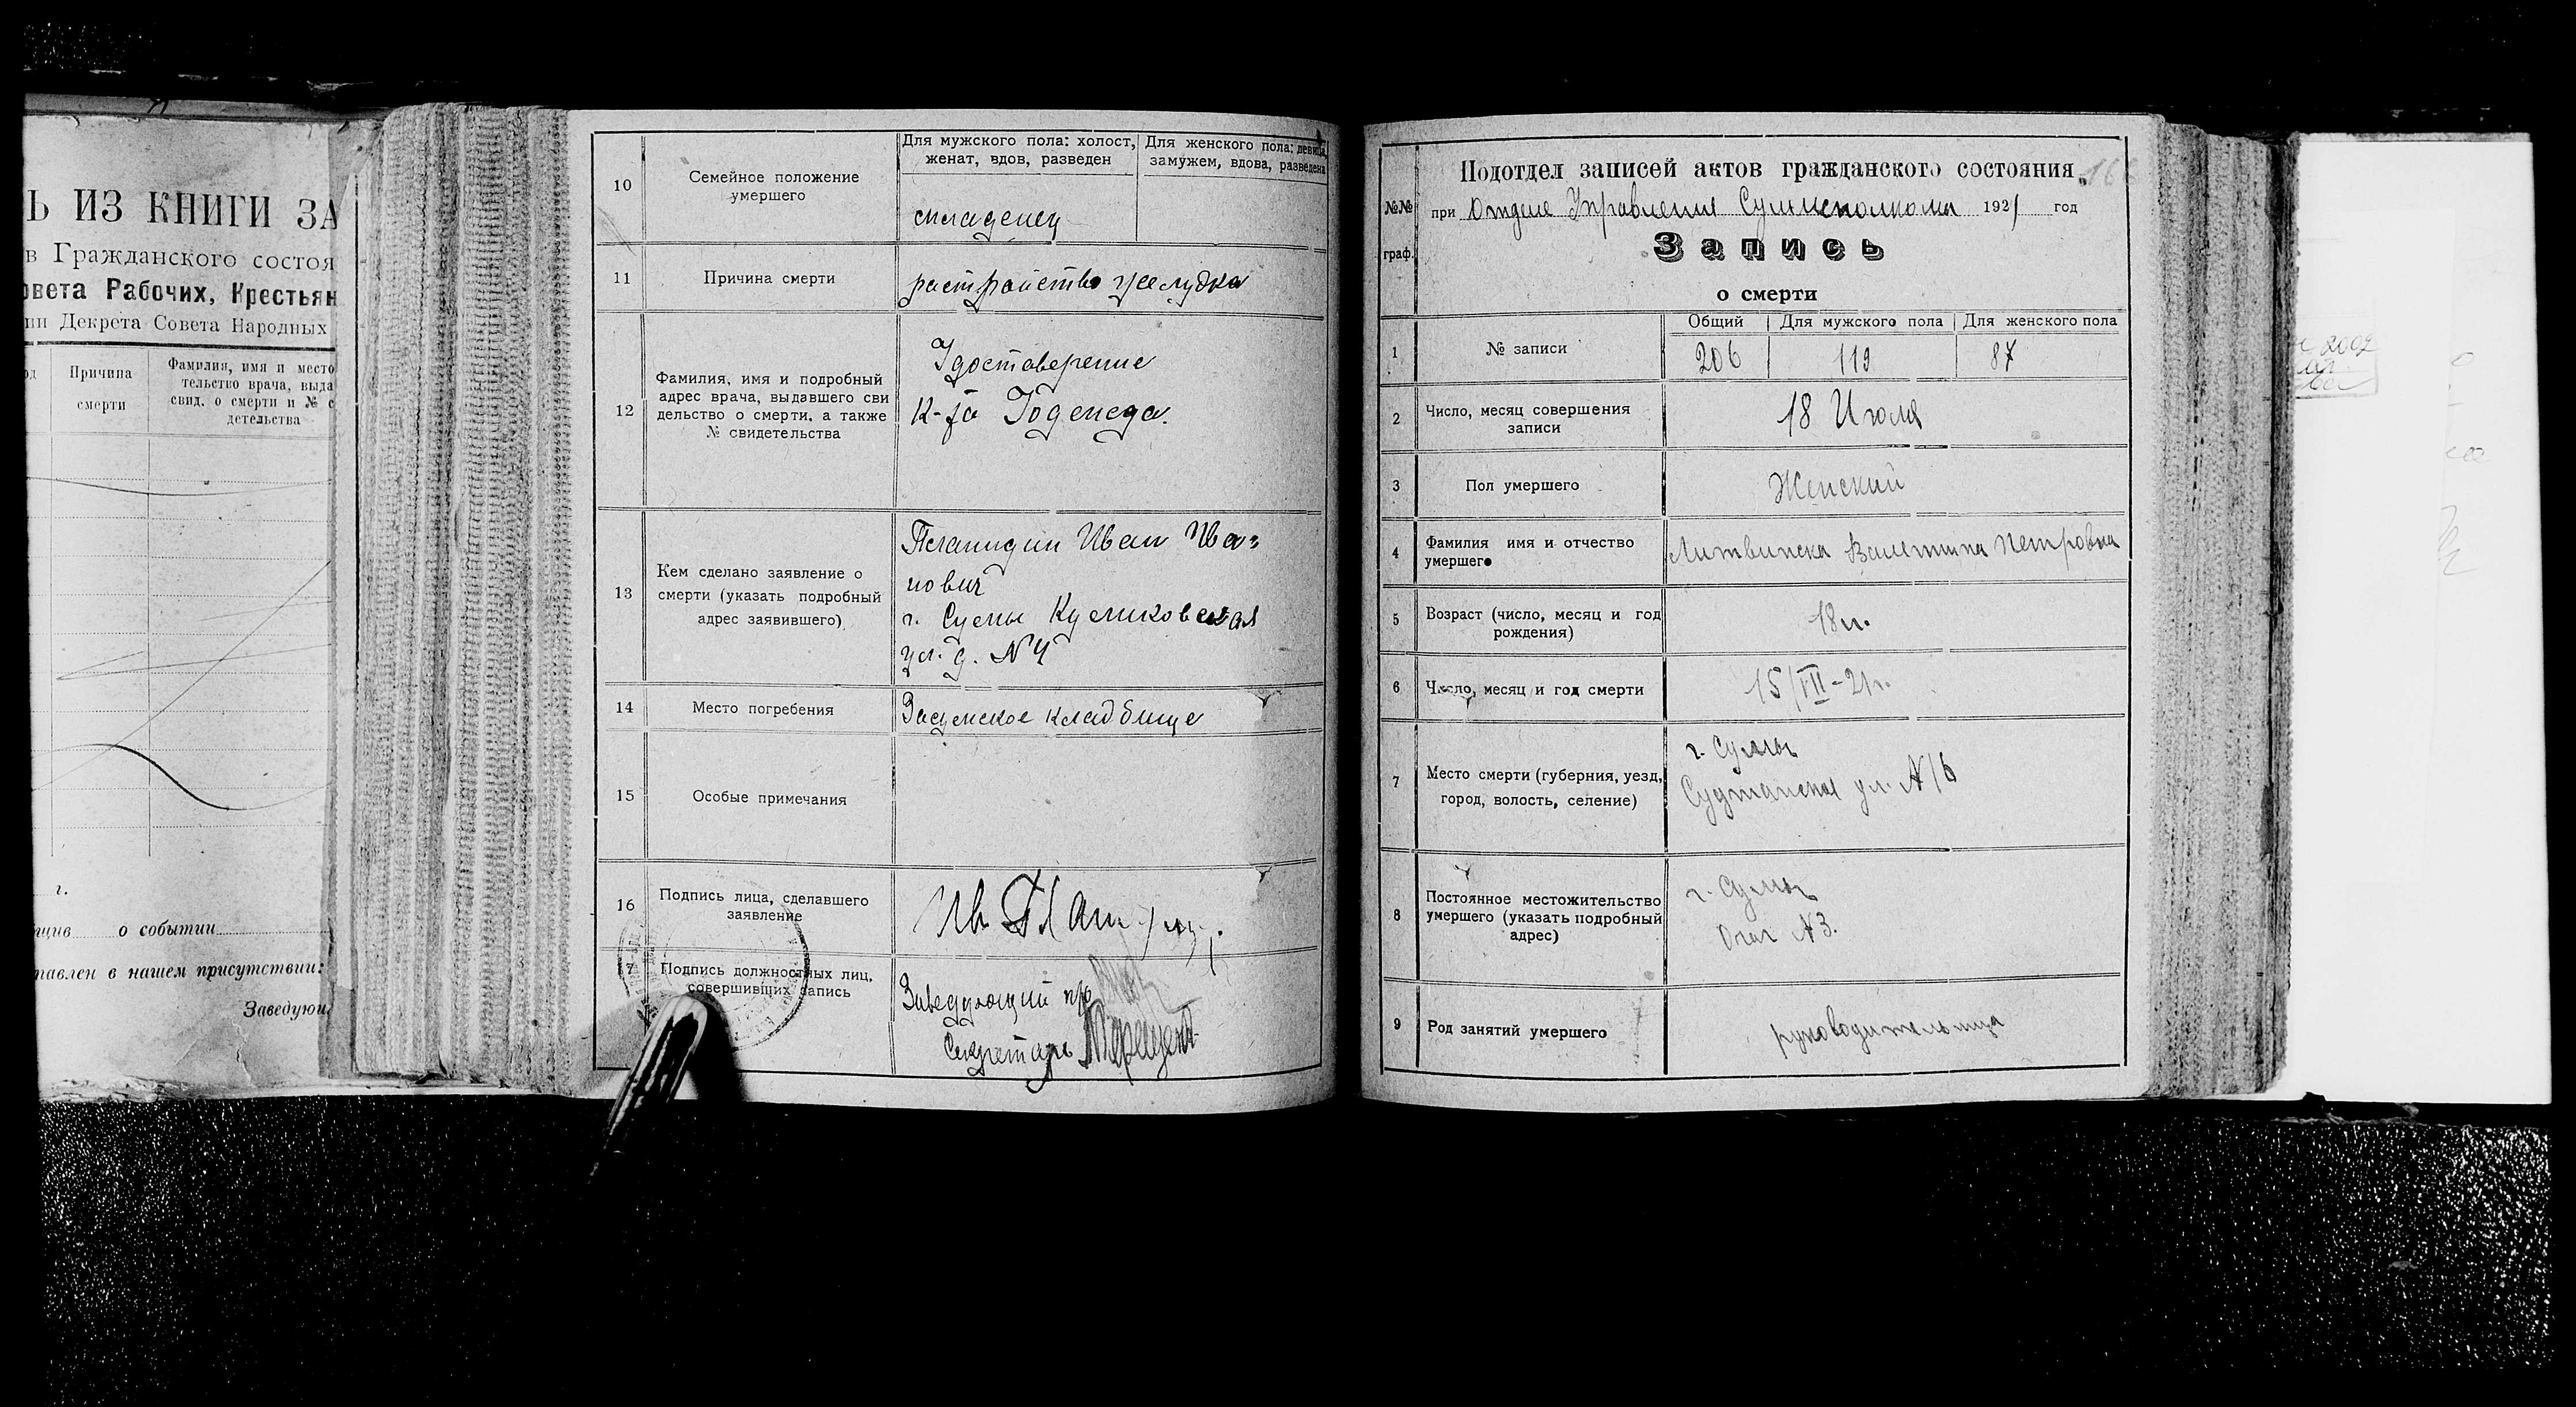 Ь ИЗ КНИГИ ЗА
в Гражданского состоя
овета Рабочих, Крестьян
ии Декрета Совета Народных
Причина смерти
Фамилия, имя и место
тельство врача, выда
свид. о смерти и № с
детельства
г.
о событии
тавлен в нашем присутствии:
Заведую
10
Семейное положение
умершего
Для мужского пола: холост,
женат, вдов, разведен
Для женского пола: девица,
замужем, вдова, разведена
младенец
11
Причина смерти
растройство желудка
12
Фамилия, имя и подробный
адрес врача, выдавшего сви
дельство о смерти, а также
№ свидетельства
Удостоверение
13
Кем сделано заявление о
смерти (указать подробный
адрес заявившего)
Иван Ива-
нович
г. Сумы Куликовская
ул. д. №4
14
Место погребения
Засумское кладбище
15
Особые примечания
16
Подпись лица, сделавшего
заявление
Ив.
17
Подпись должностных лиц,
совершивших запись
Заведующий п/о
Секретарь
Подотдел записей актов гражданского состояния
при Отделе Управления Сумисполкома 1921 год
№№
граф.
Запись
о смерти
1
№ записи
Общий
Для мужского пола
Для женского пола
206
119
87
2
Число, месяц совершения
записи
18 Июля
3
Пол умершего
Женский
4
Фамилия имя и отчество
умершего
Валентина Петровна
5
Возраст (число, месяц и год
рождения)
18 л.
6
Число, месяц и год смерти
15/VII-21г.
7
Место смерти (губерния, уезд,
город, волость, селение)
г. Сумы
Суджанская ул. №16
8
Постоянное местожительство
умершего (указать подробный
адрес)
г. Сумы
Очаг №3.
9
Род занятий умершего
руководительница